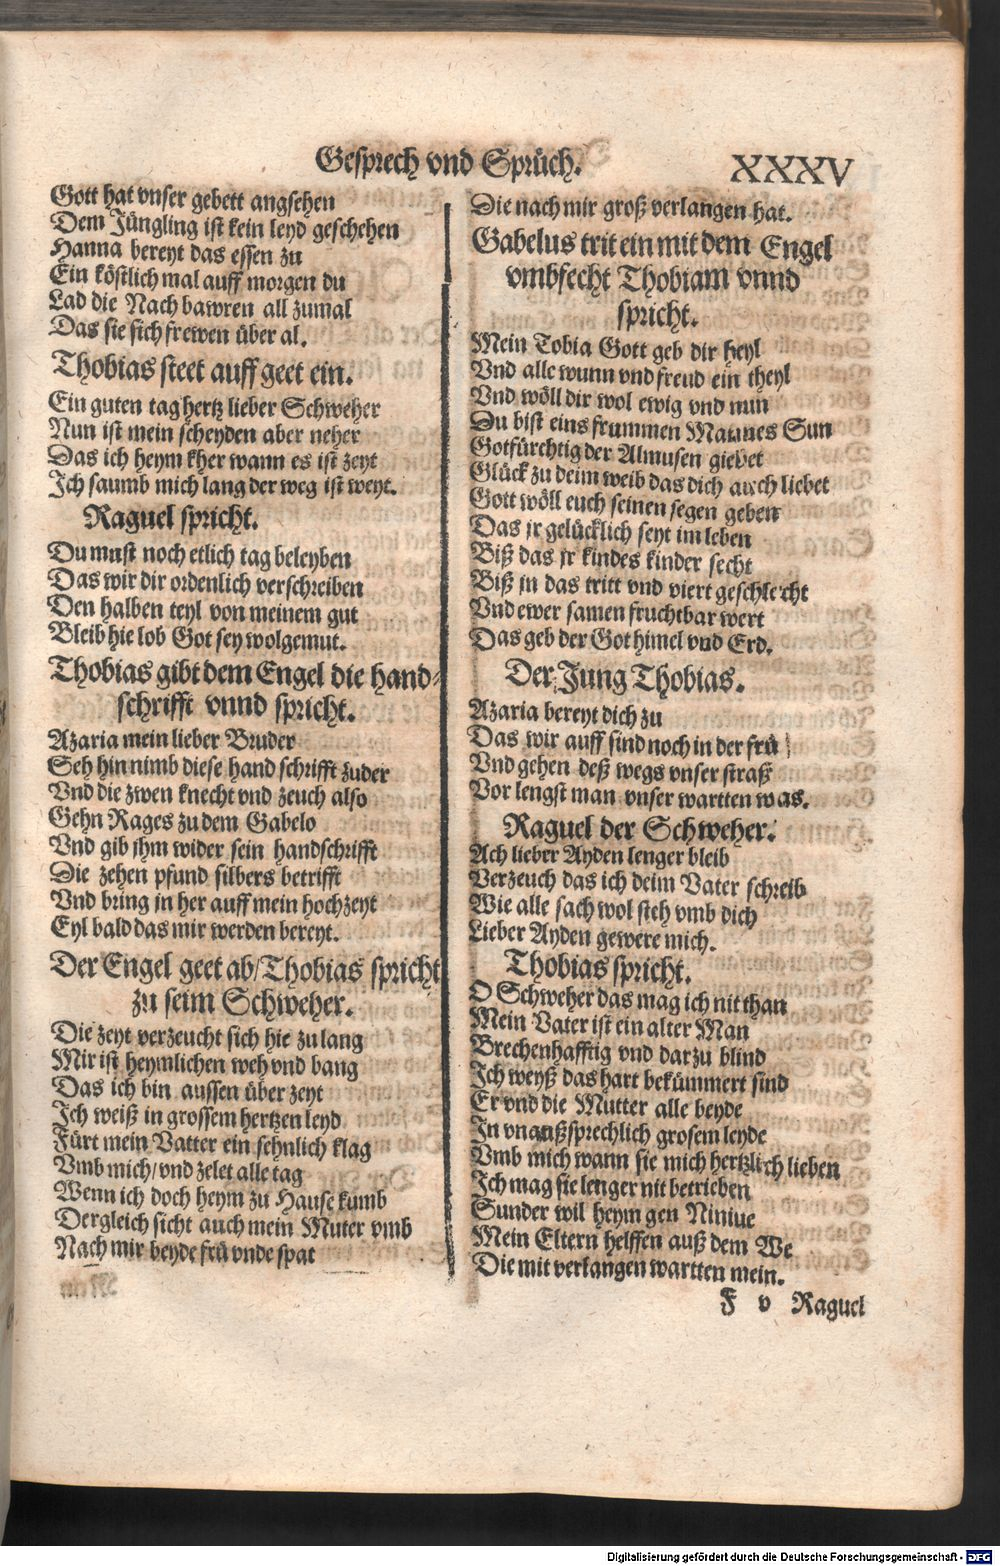 Gesprech vnd Sprüch. XXXV
Gott hat vnser gebett angsehen
Dem Jüngling ist kein leyd geschehen
Hanna bereyt das essen zu
Ein köstlich mal auff morgen du
Lad die Nach bawren all zumal
Das sie sich frewen über al.
Thobias steet auff geet ein.
Ein guten tag hertz lieber Schweher
Nun ist mein scheyden aber neher
Das ich heym kher wann es ist zeyt
Ich saumb mich lang der weg ist weyt.
Raguel spricht.
Du must noch etlich tag beleyben
Das wir dir ordenlich verschreiben
Den halben teyl von meinem gut
Bleib hie lob Got sey wolgemut.
Thobias gibt dem Engel die hand-
schrifft vnnd spricht.
Azaria mein lieber Bruder
Seh hin nimb diese hand schrifft zuder
Vnd die zwen knecht vnd zeuch also
Gehn Rages zu dem Gabelo
Vnd gib jhm wider sein handschrifft
Die zehen pfund silbers betrifft
Vnd bring in her auff mein hochzeyt
Eyl bald das mir werden bereyt.
Der Engel geet ab/Thobias spricht
zu seim Schweher.
Die zeyt verzeucht sich hie zu lang
Mir ist heymlichen weh vnd bang
Das ich bin aussen über zeyt
Ich weiß in grossem hertzen leyd
Fürt mein Vatter ein sehnlich klag
Vmb mich/vnd zelet alle tag
Wenn ich doch heym zu Hause kumb
Dergleich sicht auch mein Muter vmb
Nach mir beyde frü vnde spat
Die nach mir groß verlangen hat.
Gabelus trit ein mit dem Engel
vmbfecht Thobiam vnnd
spricht.
Mein Tobia Gott geb dir heyl
Vnd alle wunn vnd freud ein theyl
Vnd wöll dir wol ewig vnd nun
Du bist eins frummen Mannes Sun
Gotfürchtig der Almusen giebet
Glück zu deim weib das dich auch liebet
Gott wöll euch seinen segen geben
Das jr gelücklich seyt im leben
Biß das jr kindes kinder secht
Biß jn das tritt vnd viert geschlecht
Vnd ewer samen fruchtbar wert
Das geb der Got himel vnd Erd.
Der Jung Thobias.
Azaria bereyt dich zu
Das wir auff sind noch in der frü
Vnd gehen deß wegs vnser straß
Vor lengst man vnser wartten was.
Raguel der Schweher.
Ach lieber Ayden lenger bleib
Verzeuch das ich deim Vater schreib
Wie alle sach wol steh vmb dich
Lieber Ayden gewere mich.
Thobias spricht.
O Schweher das mag ich nit than
Mein Vater ist ein alter Man
Brechenhafftig vnd darzu blind
Ich weyß das hart bekümmert sind
Er vnd die Mutter alle beyde
In vnaußsprechlich grosem leyde
Vmb mich wann sie mich hertzlich lieben
Ich mag sie lenger nit betrieben
Sunder wil heym gen Niniue
Mein Eltern helffen auß dem We
Die mit verlangen wartten mein.
F v Raguel
Digitalisierung gefördert durch die Deutsche Forschungsgemeinschaft - DFG